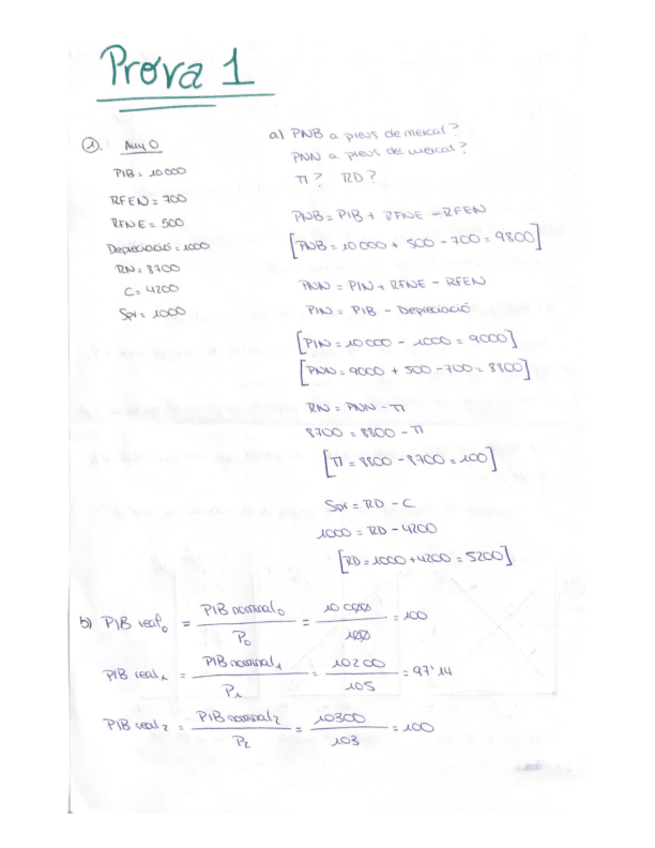 Prova 1
1. Any 0
PIB = 10000
RFEN = 700
RFNE = 500
Depreciació = 1000
RN = 8700
C = 4200
Spr = 1000
a) PNB a preus de mercat?
PNN a preus de mercat?
TI? RD?
PNB = PIB + RFNE - RFEN
[PNB = 10000 + 500 - 700 = 9800]
PNN = PIN + RFNE - RFEN
PIN = PIB - Depreciació
[PIN = 10000 - 1000 = 9000]
[PNN = 9000 + 500 - 700 = 8800]
RN = PNN - TI
8700 = 8800 - TI
[TI = 8800 - 8700 = 100]
Spr = RD - C
1000 = RD - 4200
[RD = 1000 + 4200 = 5200]
b) PIB real₀ = PIB nominal₀ / P₀ = 10000 / 100 = 100
PIB real₁ = PIB nominal₁ / P₁ = 10200 / 105 = 97'14
PIB real₂ = PIB nominal₂ / P₂ = 10300 / 103 = 100